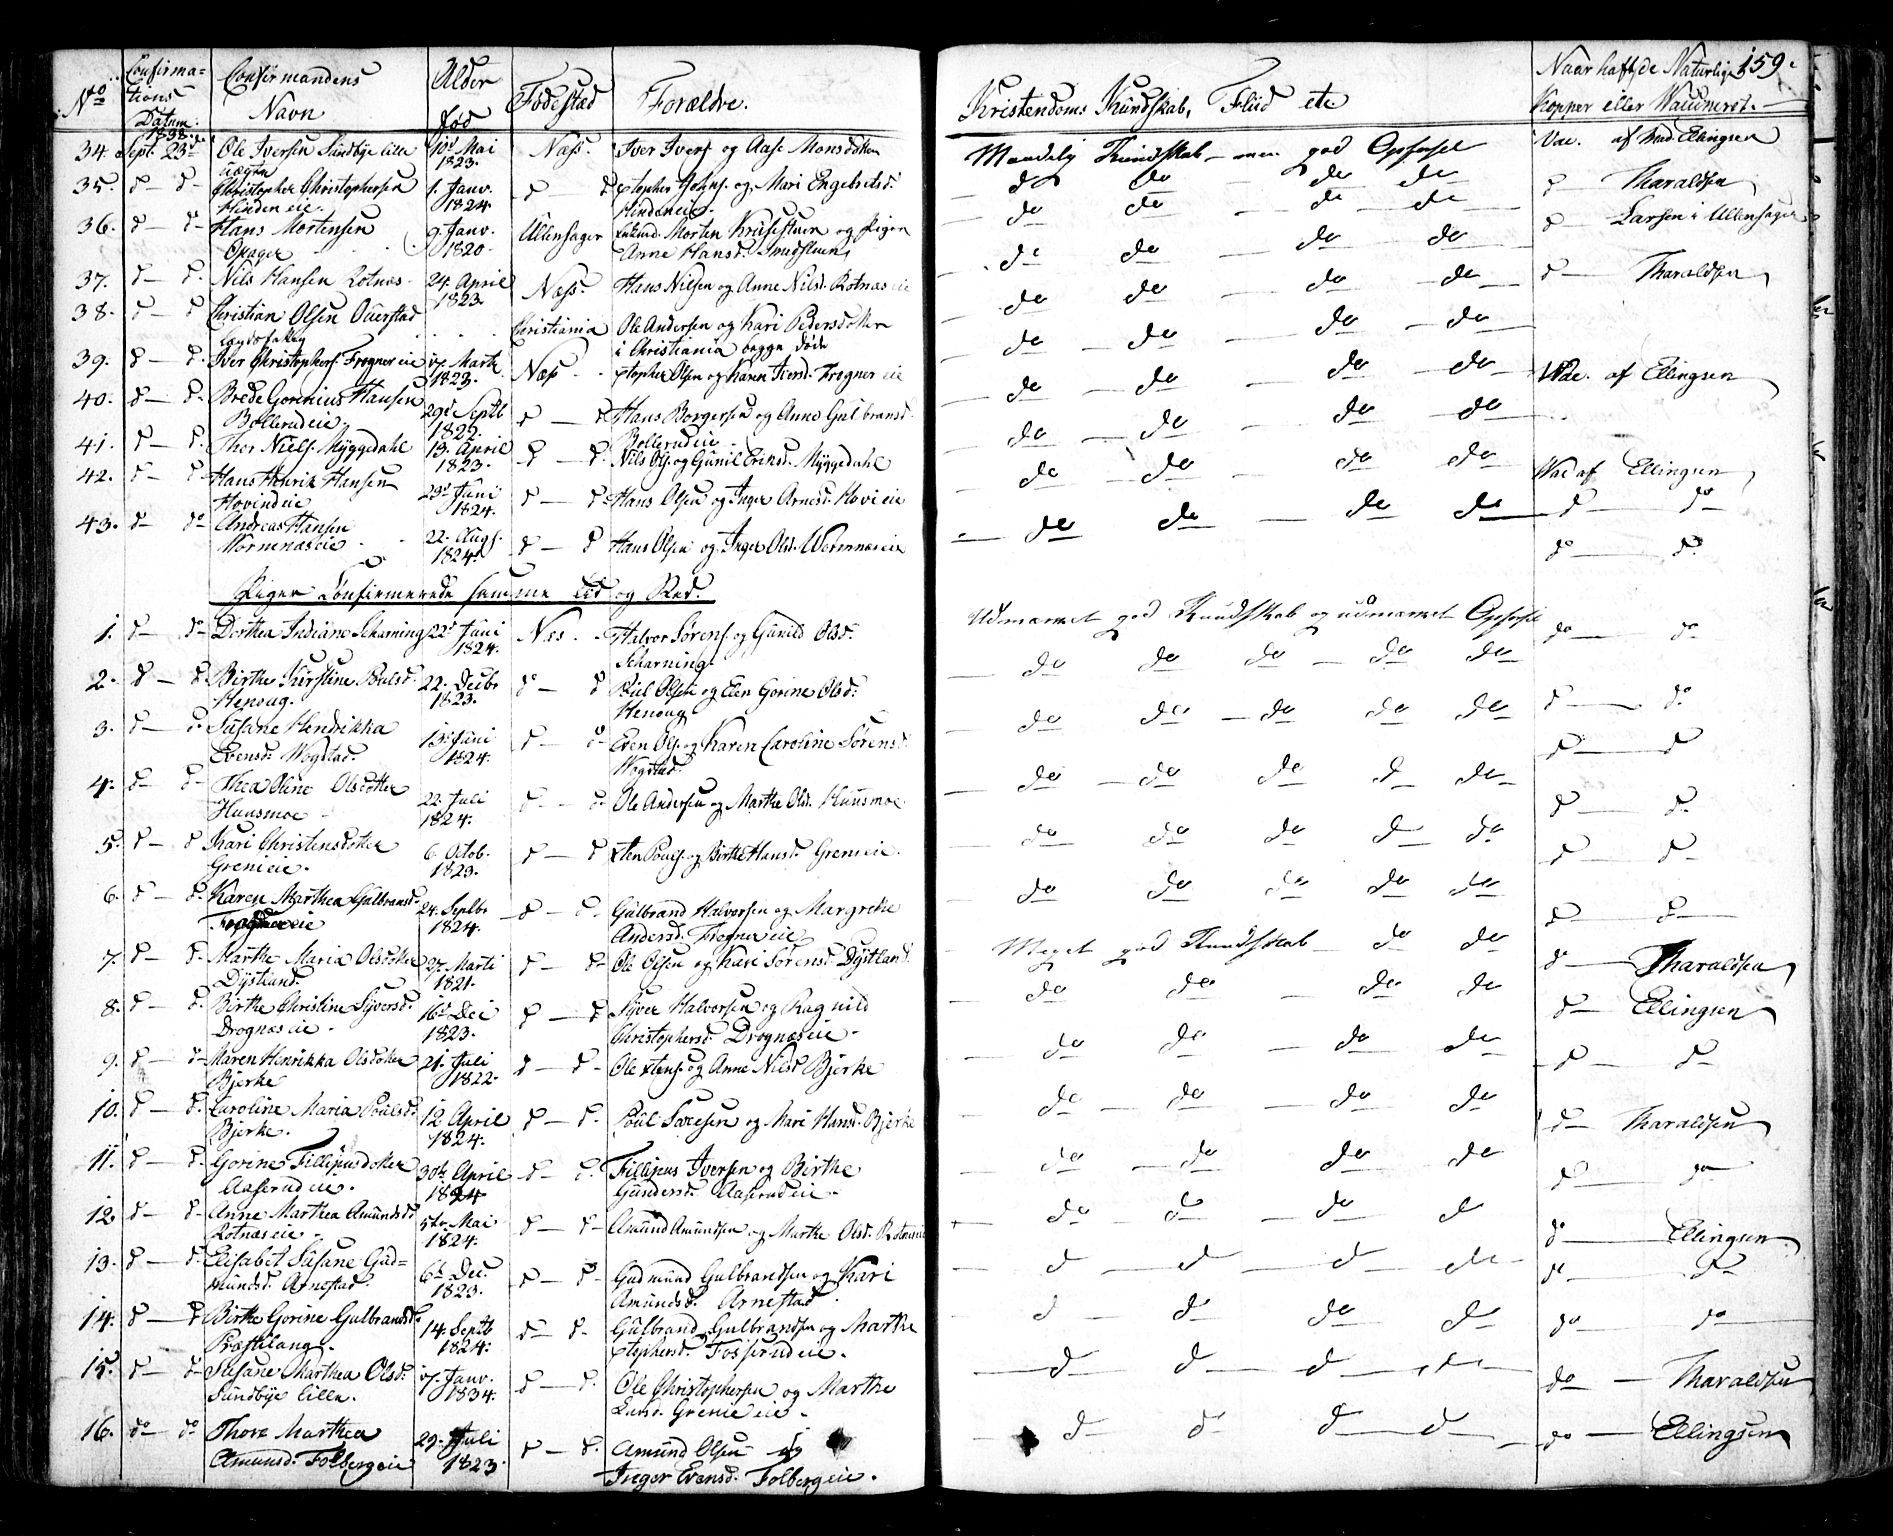 No Confirmations Datum 1838. Confirmandens Navn Alder fød Fødestæd Forældre. Kristendoms Kundskab, Fliid etc Naar hafde Naturlige Kopper eller Vaccineret. 159.
34. Sept. 23de Ole Iversen Sundbye lille 10d Mai 1823. Næss. Iver Ivers. og Aase Monsdotter Maadelig Kundskab men god Opførsel Vac. af Mad Ellingsen
35. do do Christopher Christophersen Hinden eie. 1. Janv. 1824. do do Xtopher Johns. og Mari Engebretsd. Hindeneie. do do do do do Tharaldsen
36. do do Hans Mortensen Opager 9. Janv. 1820. Ullensager Morten Kruse og Pigen Anne Hansd. do do do do do Larsen i Ullensager
37. do do Nils Hansen Rotnæs 24. April 1823. Næss. Hans Nilsen og Anne Nilsd. Rotnæs eie do do do do do Tharaldsen
38. do do Christian Olsen Ouerstad Christiania Ole Andersen og Kari Pedersdotter i Christiania begge døde do do do do
39. do do Iver Christophers. Frogner eie 17. Marti 1823. Næs Xtopher Olsen og Karen Iversd. Frogner eie do do do do Vac. af Ellingsen
40. do do Brede Gorinius Hansen Bollerud eie 29d Septb 1822. do do Hans Borgersen og Anne Gulbransd. Bollerud eie do do do do
41. do do Thor Niels. Myggedahl 13. April 1823. do do Nils Ols. og Gunil Eriksd. Myggedahl do do do do Vac af Ellingsen
42. do do Hans Henrik Hansen Hovind eie 29d Juni 1824. do do Hans Olsen og Inger Arnesd. Hovi eie do do do do do do
43. do do Andreas Hansen Wormenæs eie 22. Augs. 1824. do do Hans Olsen og Inger Olsd. Wormnæs eie do do do do do do
Piger Confirmerede samme Tid og Sted.
1. do do Dorthea Indiane Scharning 22d Juni 1824. Næs Halvor Sørens. og Gunild Olsd. Scharning Udmærket god Kundskab og udmærket Opførsel do do
2. do do Birthe Kirstine Pouls. Henoug. 22. Decbr 1823. do do Poul Olsen og Elen Gorine Olsd. Henoug do do do do do do do
3. do do Susane Hendrikka Evensd. Wogstad. 13d Juni 1824. do do Even Ols. og Karen Caroline Sørensd. Wogstad. do do do do do do do
4. do do Thea Oline Olsdotter Huusmoe 22. Juli 1824. do do Ole Andersen og Marthe Olsd. Huusmoe do do do do do do do
5. do do Kari Christensdotter Greni eie. 6. Octob. 1823. do do Xten Pouls. og Birthe Hansd. Greni eie. do do do do do do do
6. do do Karen Marthea Gulbransd. Frogner eie 24. Septbr 1824. do do Gulbrand Halvorsen og Margrethe Andersd. Frogner eie do do do do do do do
7. do do Marthe Maria Olsdotter Dystland. 27. Marti 1821. do do Ole Olsen og Kari Sørensd. Dystland. Meget god Kundskab do do do Tharaldsen
8. do do Birthe Christine Syversd. Drognæs eie 16d Dec 1823. do do Syver Halvorsen og Ragnild Christophersd. Drognæs eie do do do do do Ellingsen
9. do do Maren Henrikka Olsdotter Bjerke 21. Juli 1822. do do Ole Xtens. og Anne Nilsd Bjerke do do do do do do
10. do do Caroline Maria Poulsd. Bjerke. 12 April 1824. do do Poul Sørensen og Mari Hansd. Bjerke do do do do do Tharaldsen
11. do do Gorine Fillipusdotter Aaserud eie. 30te April 1824 do do Fillipus Iversen og Birthe Gundersd. Aaserud eie. do do do do do do
12. do do Anne Marthea Amundsd. Rotnæs eie 5te Mai 1824. do do Amund Amundsen og Marthe Olsd. Rotnæs eie do do do do do Ellingsen
13. do do Elisabet Susane Gudmundsd. Arnestad. 6d Dec. 1823. do do Gudmund Gulbrandsen og Kari Amundsd. Arnestad do do do do do do
14. do do Birthe Gorine Gulbrandsd. Præstelang. 14. Septb 1824. do do Gulbrand Gulbrandsen og Marthe Xtophersd. Fosserud eie. do do do do do do
15. do do Susane Marthea Olsd. Sundbye lille. 17. Janv. 1834. do do Ole Christophersen og Marthe Larsd. Greni eie do do do do do Tharaldsen
16. do do Thore Marthea Amunsd. Folberg eie 29. Juli 1823. do do Amund Olsen og Inger Evensd. Folberg eie. do do do do do Ellingsen